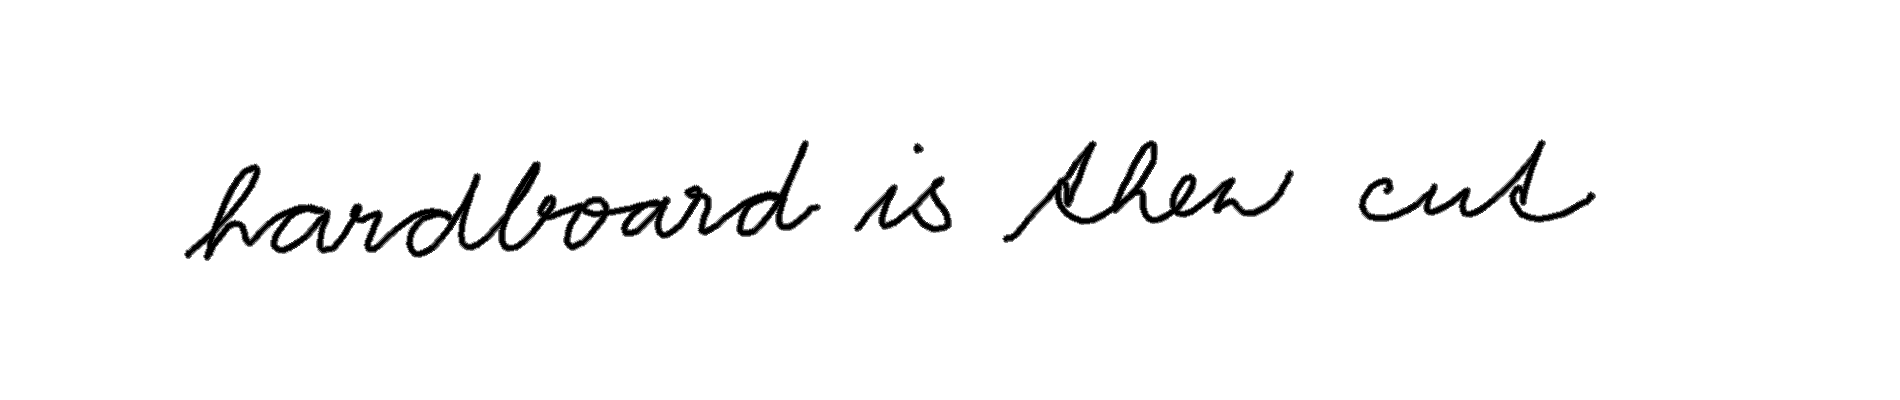 hardboard is then cut